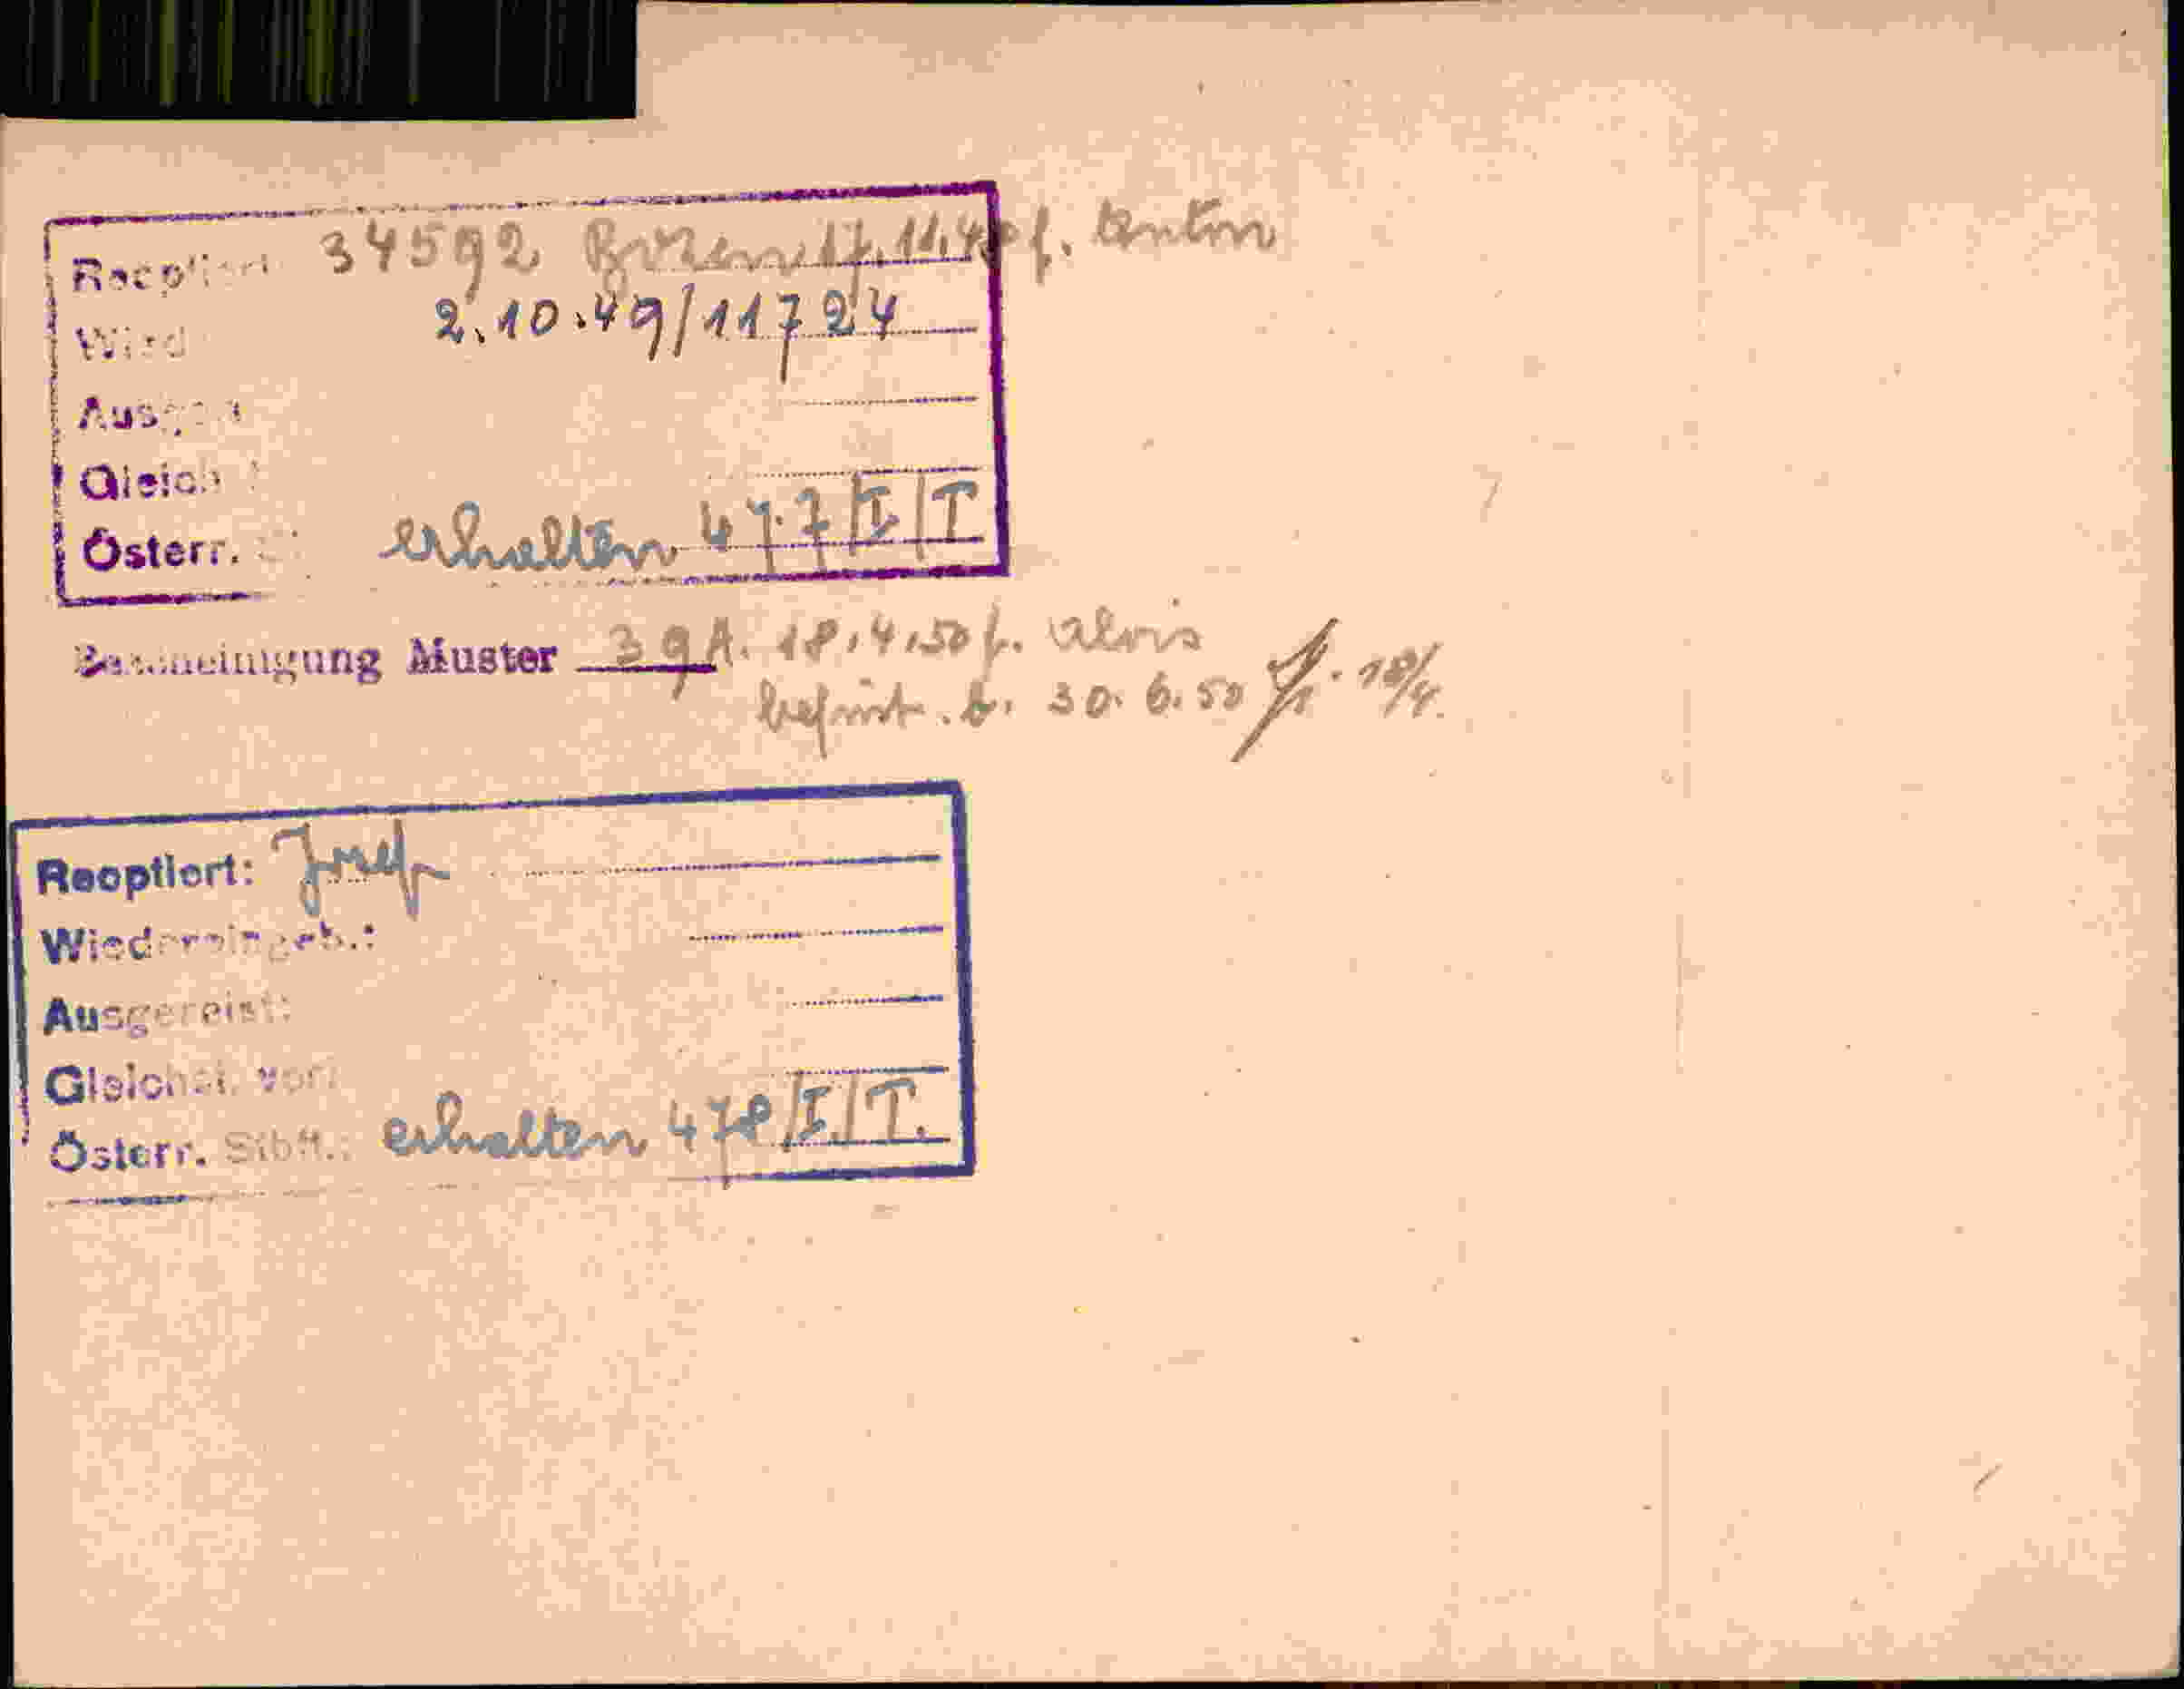 Reoptiert 34592 Bozen 17.11.49 f. Anton
Wied 2.10.49/11724
Ausger
Gleich
Österr. erhalten 477/I/T
Bescheinigung Muster 39A. 18.4.50 f. Alois
befrist. b. 30.6.50 18/4.
Reoptiert: Josef
Wiedereingeb.:
Ausgereist:
Gleichst. von
Österr. Stbft.: erhalten 478/I/T.